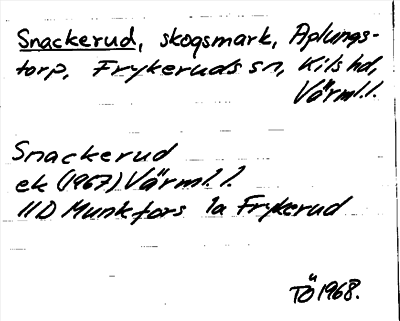 Snackerud, skogsmark, Aplungs-
torp, Frykeruds sn, Kils hd,
Värml.l.
Snackerud
ek (1967) Värml. l.
11D Munkfors 1a Frykerud
TÖ 1968.